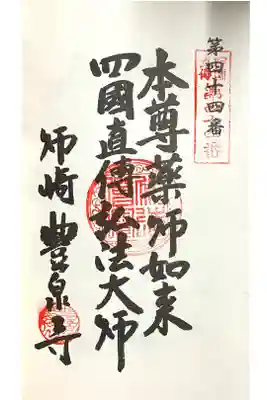 第四十四番
本尊藥师如来
四國直傳弘法大师
师崎 豊泉寺